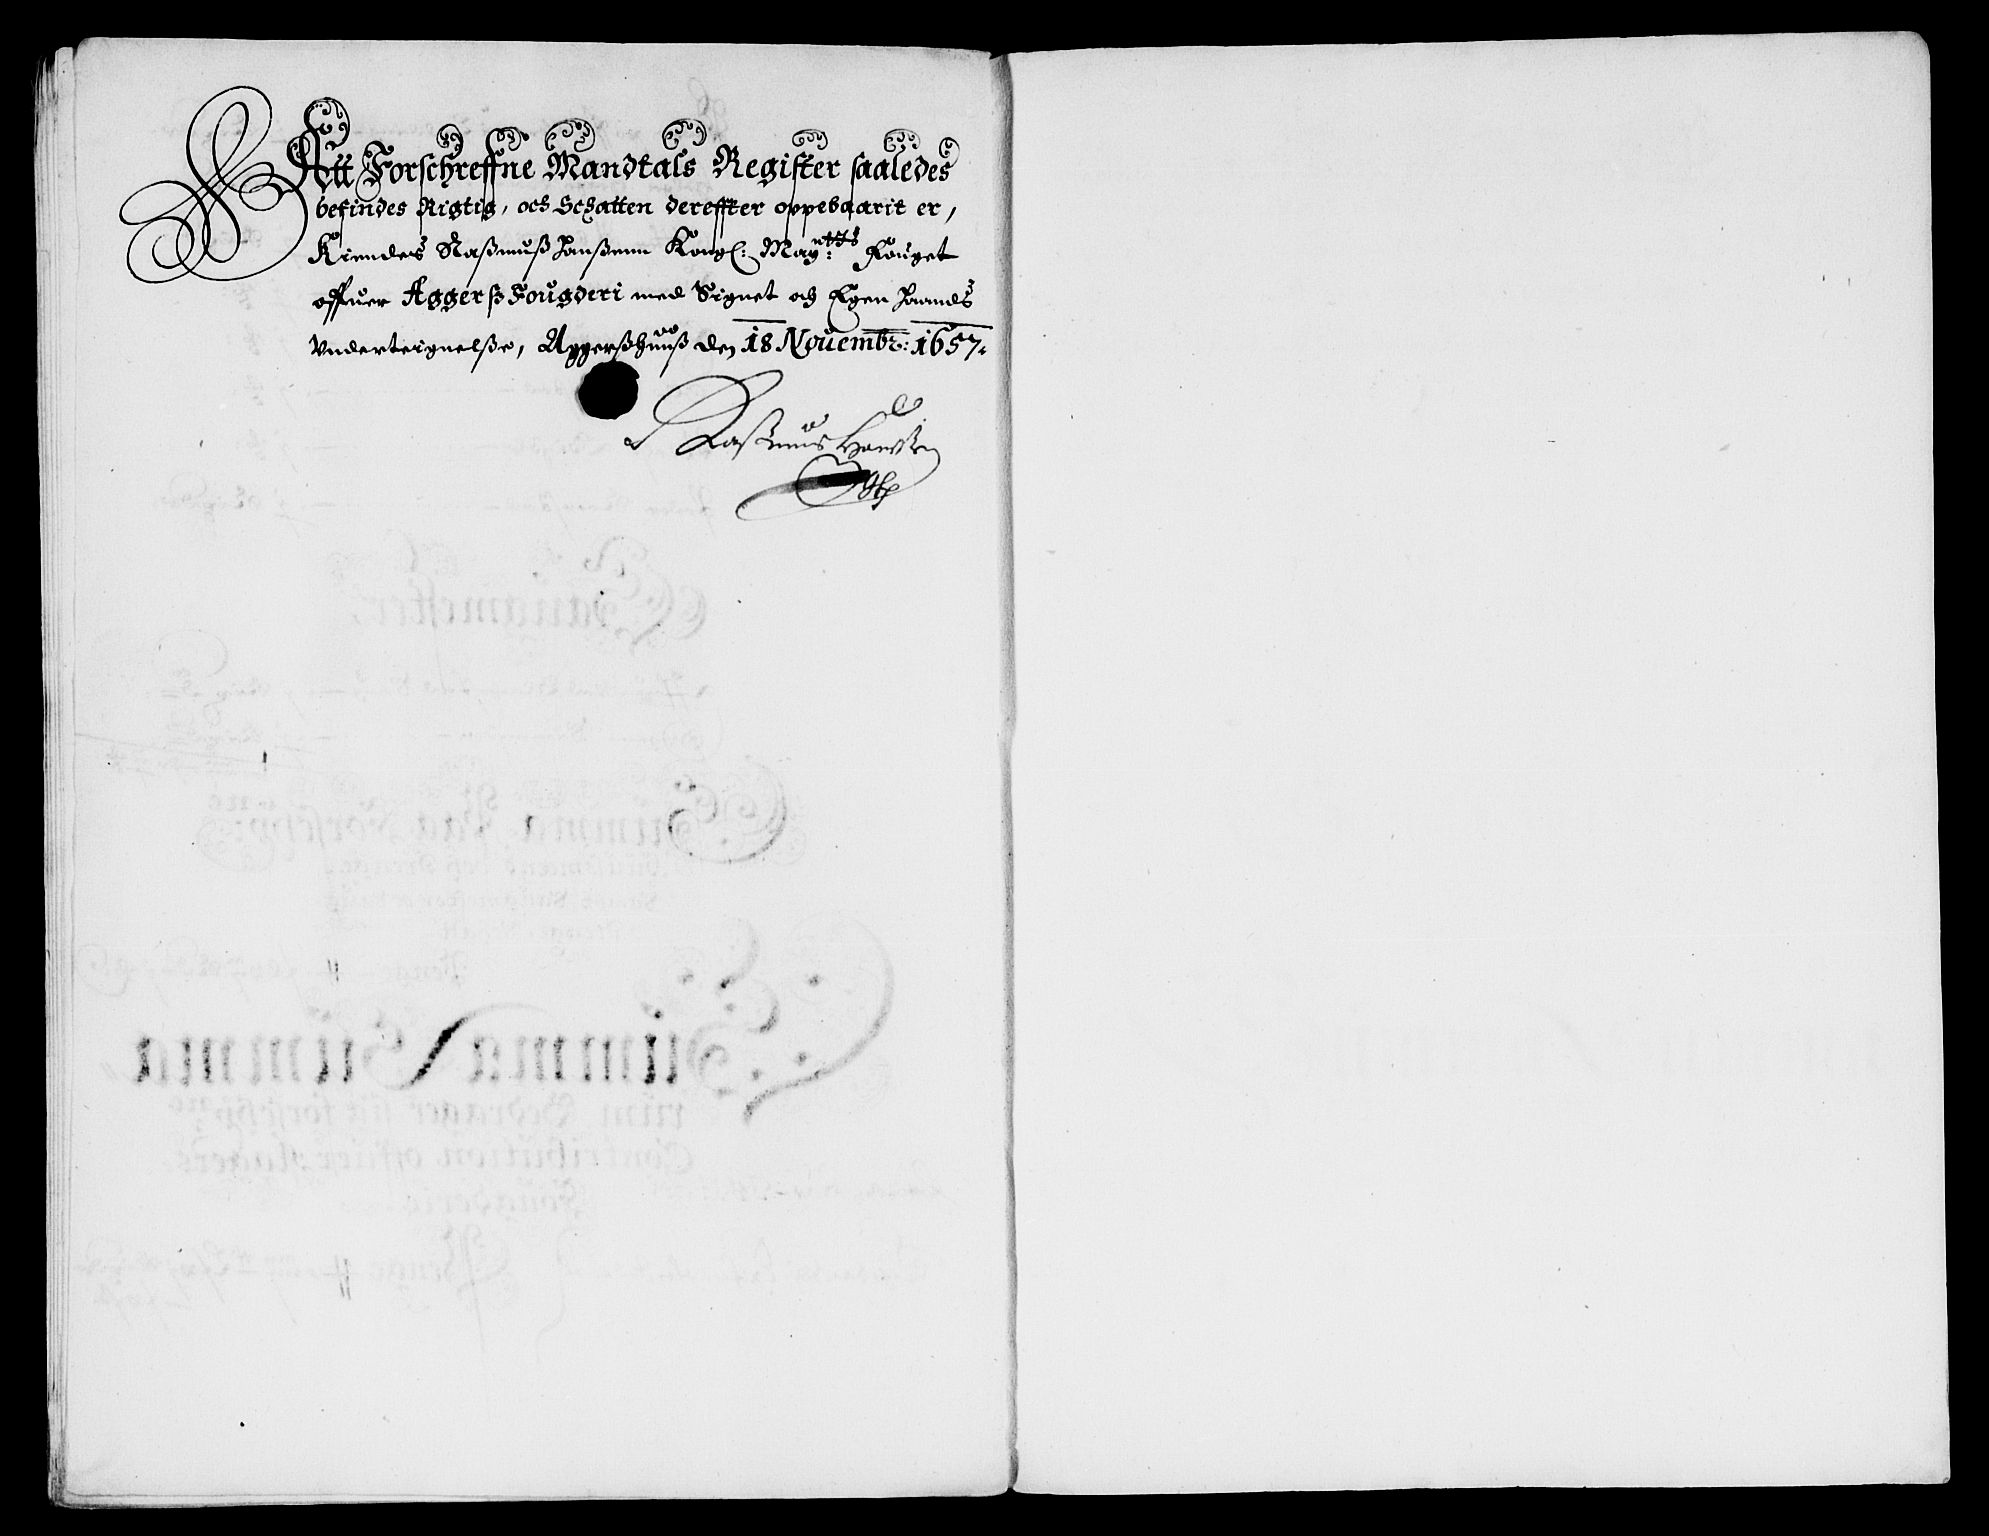 Att Forschreffne Mandtals Register saaledes
befindes Rigtig, och Schatten dereffter oppebaarit er,
Kiendes Raßmuß Hanßenn Kongl: May:ttz Fouget
offuer Aggerß Fougderi med Signet och Egen Haands
Vnderteignelße, Aggerßhuuß den 18 Nouembr: 1657.
Raßmus Hanßen